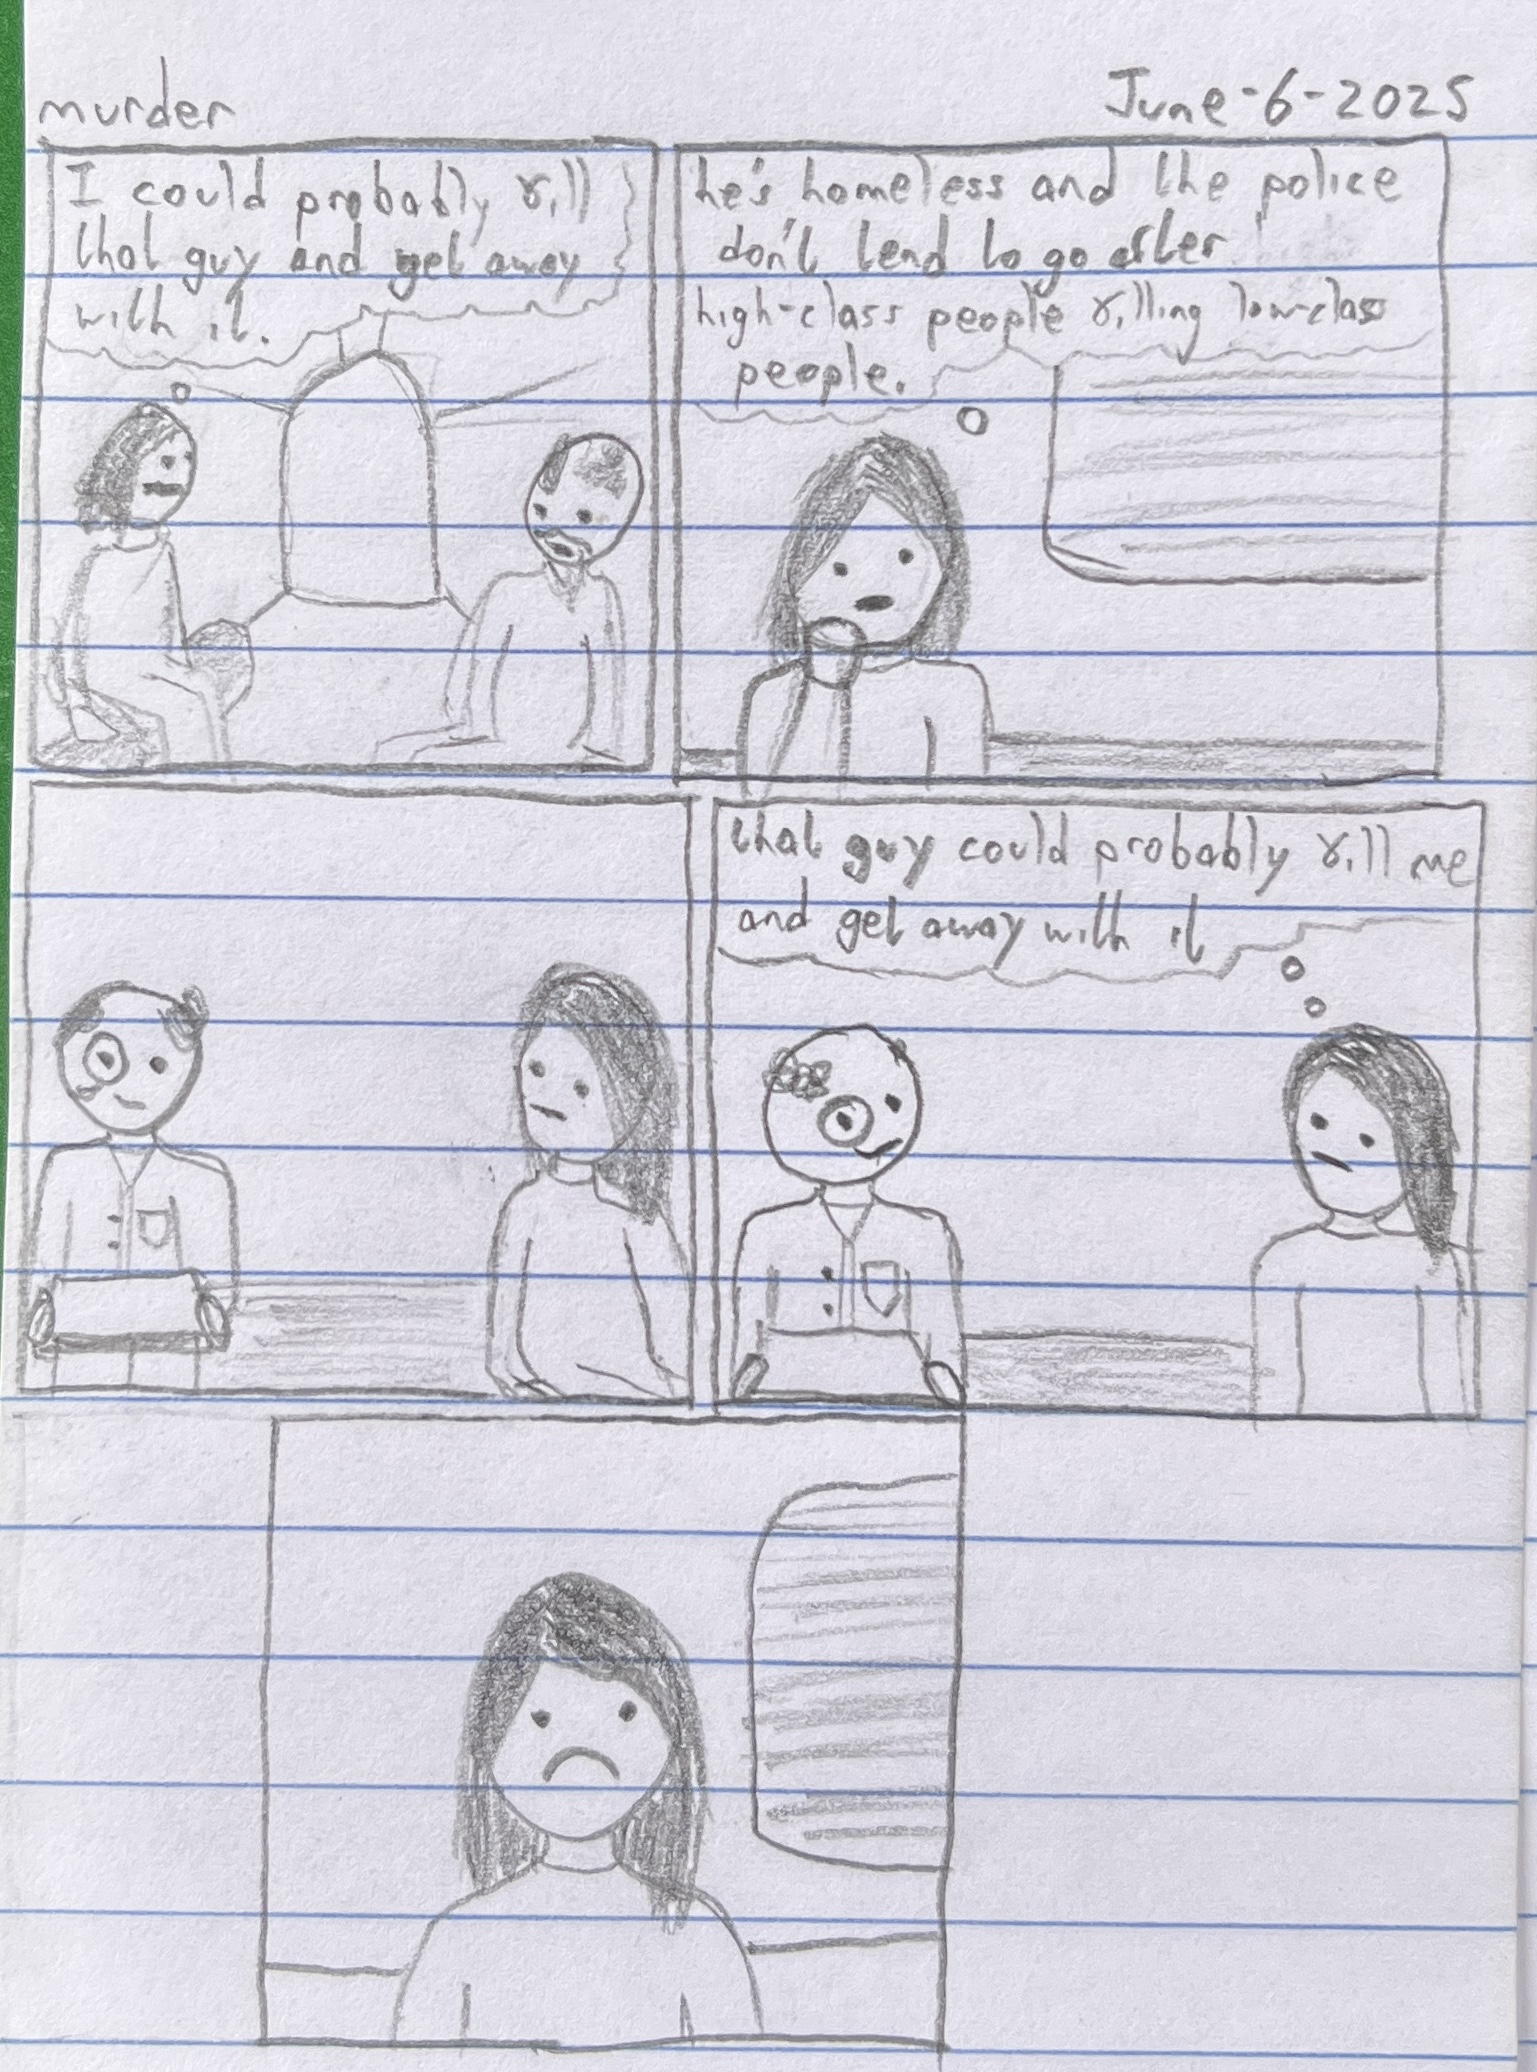 murder
June-6-2025
I could probably kill
that guy and get away
with it.
he's homeless and the police
don't tend to go after
high-class people killing low-class
people.
that guy could probably kill me
and get away with it